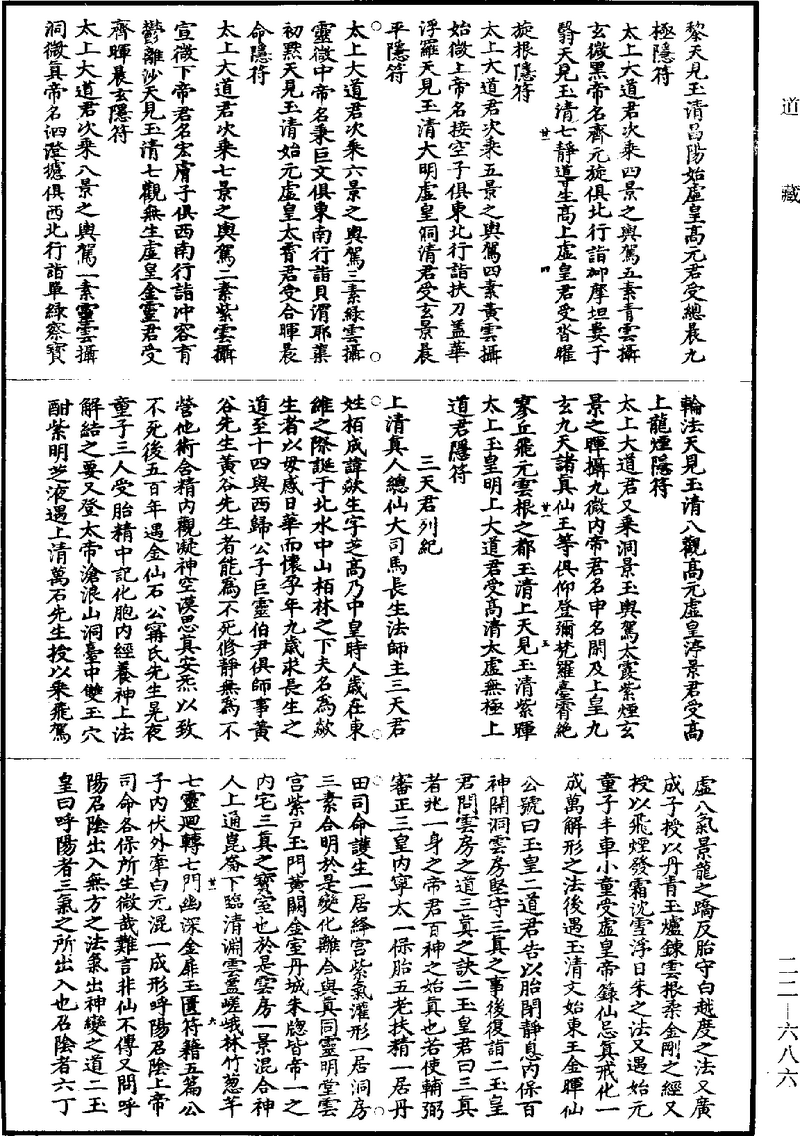 道藏
二二—六八六
黎天見玉清昌陽始虛皇高元君受總晨九
極隱符
太上大道君次乘四景之輿駕五素青雲攝
玄微黑帝名齊元旋俱北行詣抑摩坦婁于
翳天見玉清七靜導生高上虛皇君受沓曜
旋根隱符
太上大道君次乘五景之輿駕四素黃雲攝
始微上帝名接空子俱東北行詣扶刀蓋華
浮羅天見玉清大明虛皇洞清君受玄景晨
平隱符
太上大道君次乘六景之輿駕三素綠雲攝
靈微中帝名秉巨文俱東南行詣貝渭耶蕖
初默天見玉清始元虛皇太霄君受合暉晨
命隱符
太上大道君次乘七景之輿駕二素紫雲攝
宣微下帝君名宏膚子俱西南行詣沖容育
鬱離沙天見玉清七觀無生虛皇金靈君受
齊暉晨玄隱符
太上大道君次乘八景之輿駕一素靈雲攝
洞微真帝名泗澄擿俱西北行詣單綠察寶
輪法天見玉清八觀高元虛皇渟景君受高
上龍煙隱符
太上大道君又乘洞景玉輿駕太霞紫煙玄
景之暉攝九微內帝君名申名閡及上皇九
玄九天諸真仙王等俱仰登彌梵羅臺霄絕
寥丘飛元雲根之都玉清上天見玉清紫暉
太上玉皇明上大道君受高清太虛無極上
道君隱符
三天君列紀
上清真人總仙大司馬長生法師主三天君
姓栢成諱欻生字芝高乃中皇時人歲在東
維之際誕于北水中山栢林之下夫名為欻
生者以母感日華而懷孕年九歲求長生之
道至十四與西歸公子巨靈伯尹俱師事黃
谷先生黃谷先生者能為不死修靜無為不
營他術含精內觀凝神空漠思真安炁以致
不死後五百年遇金仙石公甯氏先生晃夜
童子三人受胎精中記化胞內經養神上法
解結之要又登太帝滄浪山洞臺中雙玉穴
酣紫明芝液遇上清萬石先生授以乘飛駕
虛八氣景龍之蹻反胎守白越度之法又廣
成子授以丹青玉爐鍊雲根柔金剛之經又
授以飛煙發霜沈雪浮日朱之法又遇始元
童子丰車小童受虛皇帝籙仙忌真戒化一
成萬解形之法後遇玉清文始東王金暉仙
公號曰玉皇二道君告以胎閉靜息內保百
神開洞雲房堅守三真之事後復詣二玉皇
君問雲房之道三真之訣二玉皇君曰三真
者兆一身之帝君百神之始真也若使輔弼
審正三皇內寧太一保胎五老扶精一居丹
田司命護生一居絳宮紫氣灌形一居洞房
三素合明於是變化離合與真同靈明堂雲
宮紫戶玉門黃闕金室丹城朱牕皆帝一之
內宅三真之寶室也於是雲房一景混合神
人上通崑崙下臨清淵雲蓋嵯峨林竹葱芊
七靈迴轉七門幽深金扉玉匱符籍五篇公
子內伏外牽白元混一成形呼陽召陰上帝
司命各保所生微哉難言非仙不傳又問呼
陽召陰出入無方之法氣出神變之道二玉
皇曰呼陽者三氣之所出入也召陰者六丁